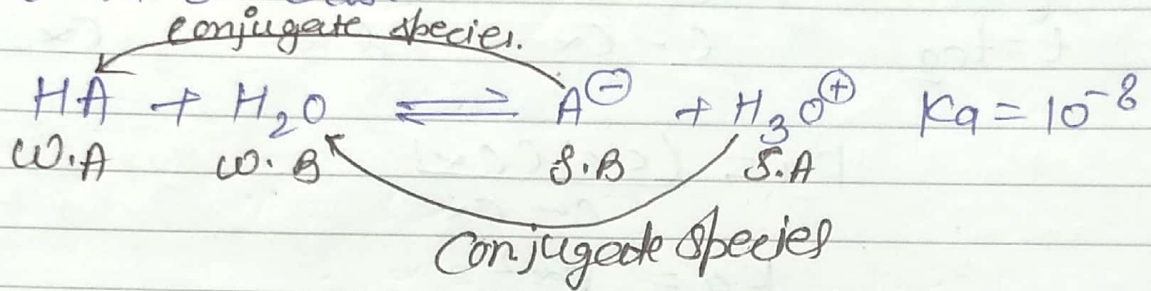 conjugate species.
HA + H₂O ⇌ A⊖ + H₃O⊕ Ka = 10⁻⁸
W.A W.B S.B S.A
Conjugate Species